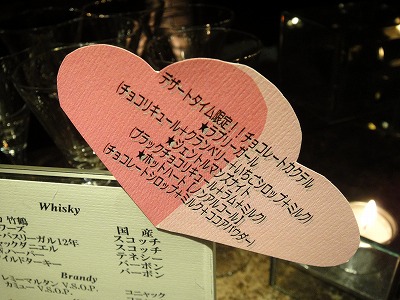 デザートタイム限定!!チョコレートカクテル
★ラブリーガール
(チョコリキュール+クランベリー+いちごシロップ+ミルク)
★ジェントルマンズナイト
(ブラックチョコリキュール+ラム+ミルク)
★ホットハート【ノンアルコール】
(チョコレートシロップ+ミルク+ココアパウダー)
Whisky
竹鶴 国産
ワーズ スコッチ
バスリーガル12年 スコッチ
ックダニエル テネシー
.ハーパー バーボン
イルドターキー バーボン
Brandy
レミーマルタン V.S.O.P. コニャック
カミュー V.S.O.P.